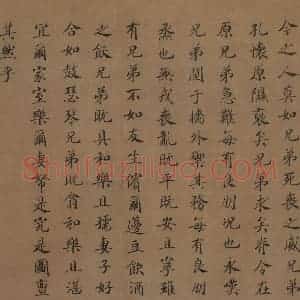 今之人莫如兄弟死喪之威兄弟
孔懷原隰裒矣兄弟求矣脊令在
原兄弟急難每有良朋況也永嘆
兄弟鬩于牆外禦其務每有良朋
烝也無戎喪亂既平既安且寧雖
有兄弟不如友生儐爾籩豆飲酒
之飫兄弟既具和樂且孺妻子好
合如鼓瑟琴兄弟既翕和樂且湛
宜爾家室樂爾妻帑是究是圖亶
其然乎